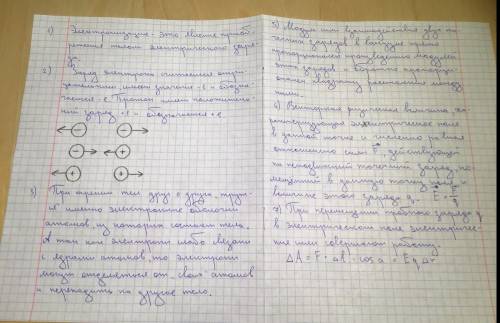 1) Электризация - это явление приоб-
ретения телом электрического заря-
да.
2) Заряд электрона считается отри-
цательным, имеет значение -e и обозна-
чается -e. Протон имеет положитель-
ный заряд +e и обозначается +e.
- -
- +
+ +
3) При трении тел друг о друга, трут-
ся именно электронные оболочки
атомов, из которых состоит тело.
А так как электроны слабо связаны
с ядрами атомов, то электроны
могут отделяться от "своих" атомов
и переходить на другое тело.
5) Модуль сил взаимодействия двух то-
чечных зарядов в вакууме прямо
пропорционален произведению модулей
этих зарядов и обратно пропорци-
онален квадрату расстояния между
ними.
6) Векторная физическая величина, ха-
рактеризующая электрическое поле
в данной точке и численно равная
отношению силы F, действующей
на неподвижный точечный заряд, по-
мещённый в данную точку поля, к
величине этого заряда q. E = F/q
7) При перемещении пробного заряда q
в электрическом поле электричес-
кие силы совершают работу.
ΔA = F · Δl · cos α = E q Δr